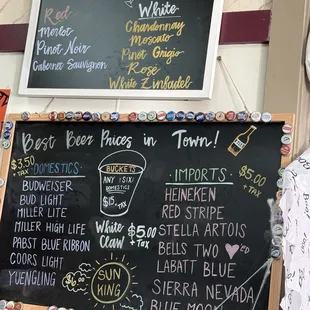 Red
Merlot
Pinot Noir
Cabernet Sauvignon
White
Chardonnay
Moscato
Pinot Grigio
Rosé
White Zinfadel
Best Beer Prices in Town!
$3.50
+ TAX
DOMESTICS
BUDWEISER
BUD LIGHT
MILLER LITE
MILLER HIGH LIFE
PABST BLUE RIBBON
COORS LIGHT
YUENGLING
BUCKETS
ANY SIX
DOMESTICS
$15 + TAX
White
Claw
$5.00
+ TAX
SUN
KING
$6.00
IMPORTS
$5.00
+ TAX
HEINEKEN
RED STRIPE
STELLA ARTOIS
BELLS TWO ♥ED
LABATT BLUE
SIERRA NEVADA
BLUE MOON